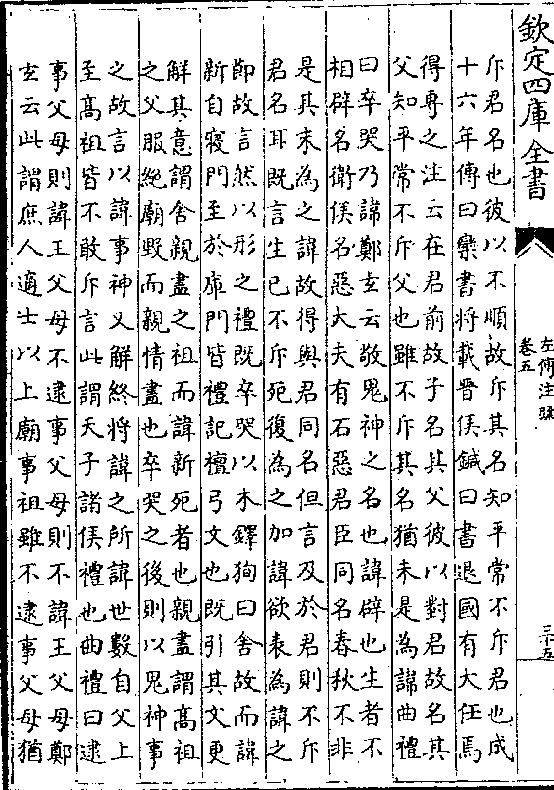 欽定四庫全書
左傳注疏
卷五
三十五
斥君名也彼以不順故斥其名知平常不斥君也成
十六年傳曰欒書將載晉侯鍼曰書退國有大任焉
得專之注云在君前故子名其父彼以對君故名其
父知平常不斥父也雖不斥其名猶未是為諱曲禮
曰卒哭乃諱鄭玄云敬鬼神之名也諱辟也生者不
相辟名衛侯名惡大夫有石惡君臣同名春秋不非
是其未為之諱故得與君同名但言及於君則不斥
君名耳既言生已不斥死復為之加諱欲表為諱之
節故言然以形之禮既卒哭以木鐸徇曰舍故而諱
新自寢門至於庫門皆禮記檀弓文也既引其文更
解其意謂舍親盡之祖而諱新死者也親盡謂高祖
之父服絕廟毀而親情盡也卒哭之後則以鬼神事
之故言以諱事神又解終將諱之所諱世數自父上
至高祖皆不敢斥言此謂天子諸侯禮也曲禮曰逮
事父母則諱王父母不逮事父母則不諱王父母鄭
玄云此謂庶人適士以上廟事祖雖不逮事父母猶